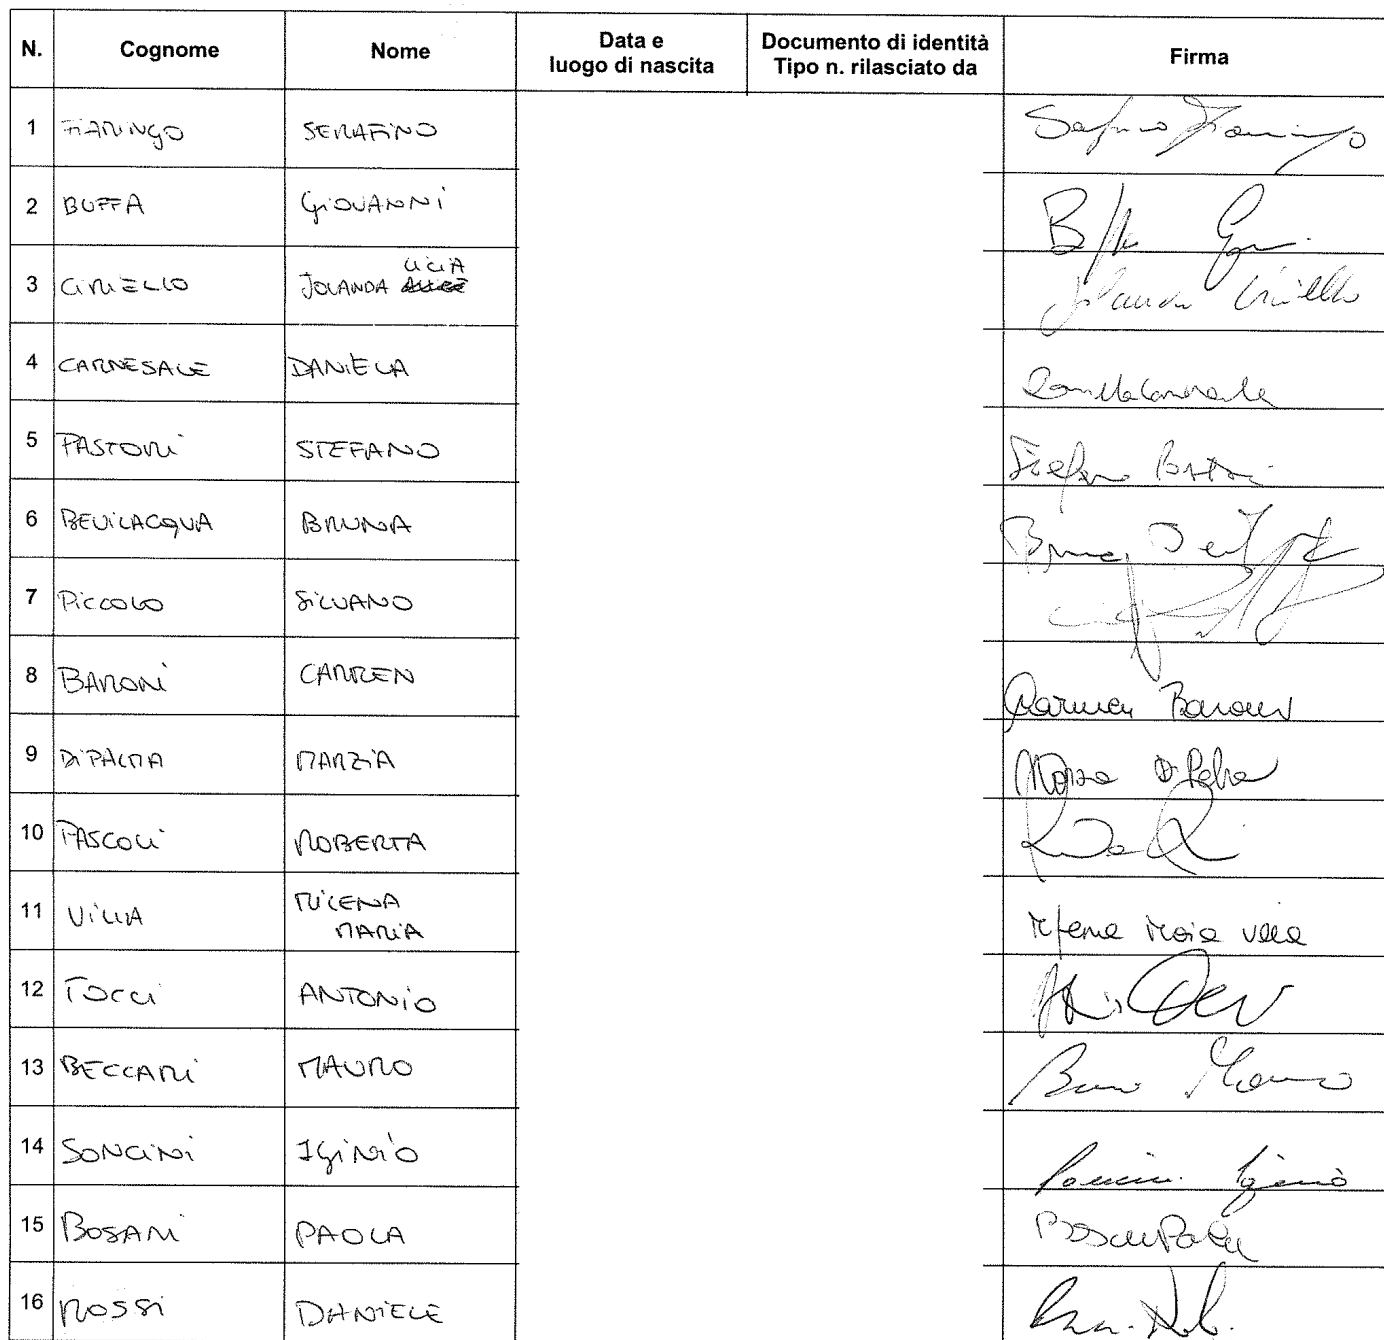 N. Cognome Nome Data e luogo di nascita Documento di identità Tipo n. rilasciato da Firma
1 FIAMINGO SERAFINO Serafino Fiamingo
2 BUFFA GIOVANNI
LICIA
3 CIRIELLO JOLANDA Jolanda Ciriello
4 CARNESALE DANIELA Daniela Carnesale
5 PASTORI STEFANO Stefano Pastori
6 BEVILACQUA BRUNA
7 PICCOLO SILVANO
8 BARONI CARMEN Carmen Baroni
9 DI PALMA MARZIA Marzia Di Palma
10 PASCOLI ROBERTA
11 VILLA MILENA Milena Maria Villa
MARIA
12 TOCCI ANTONIO
13 BECCARI MAURO
14 SONCINI IGINIO Soncini Iginio
15 BOSANI PAOLA Bosani Paola
16 ROSSI DANIELE